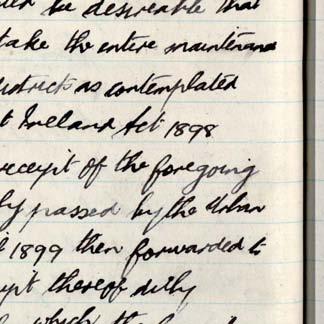 be desireable that
take the entire maintenance
districts as contemplated
t Ireland Act 1898
receipt of the foregoing
ly passed by the Urban
1899 then forwarded to
ipt thereof duly
which the